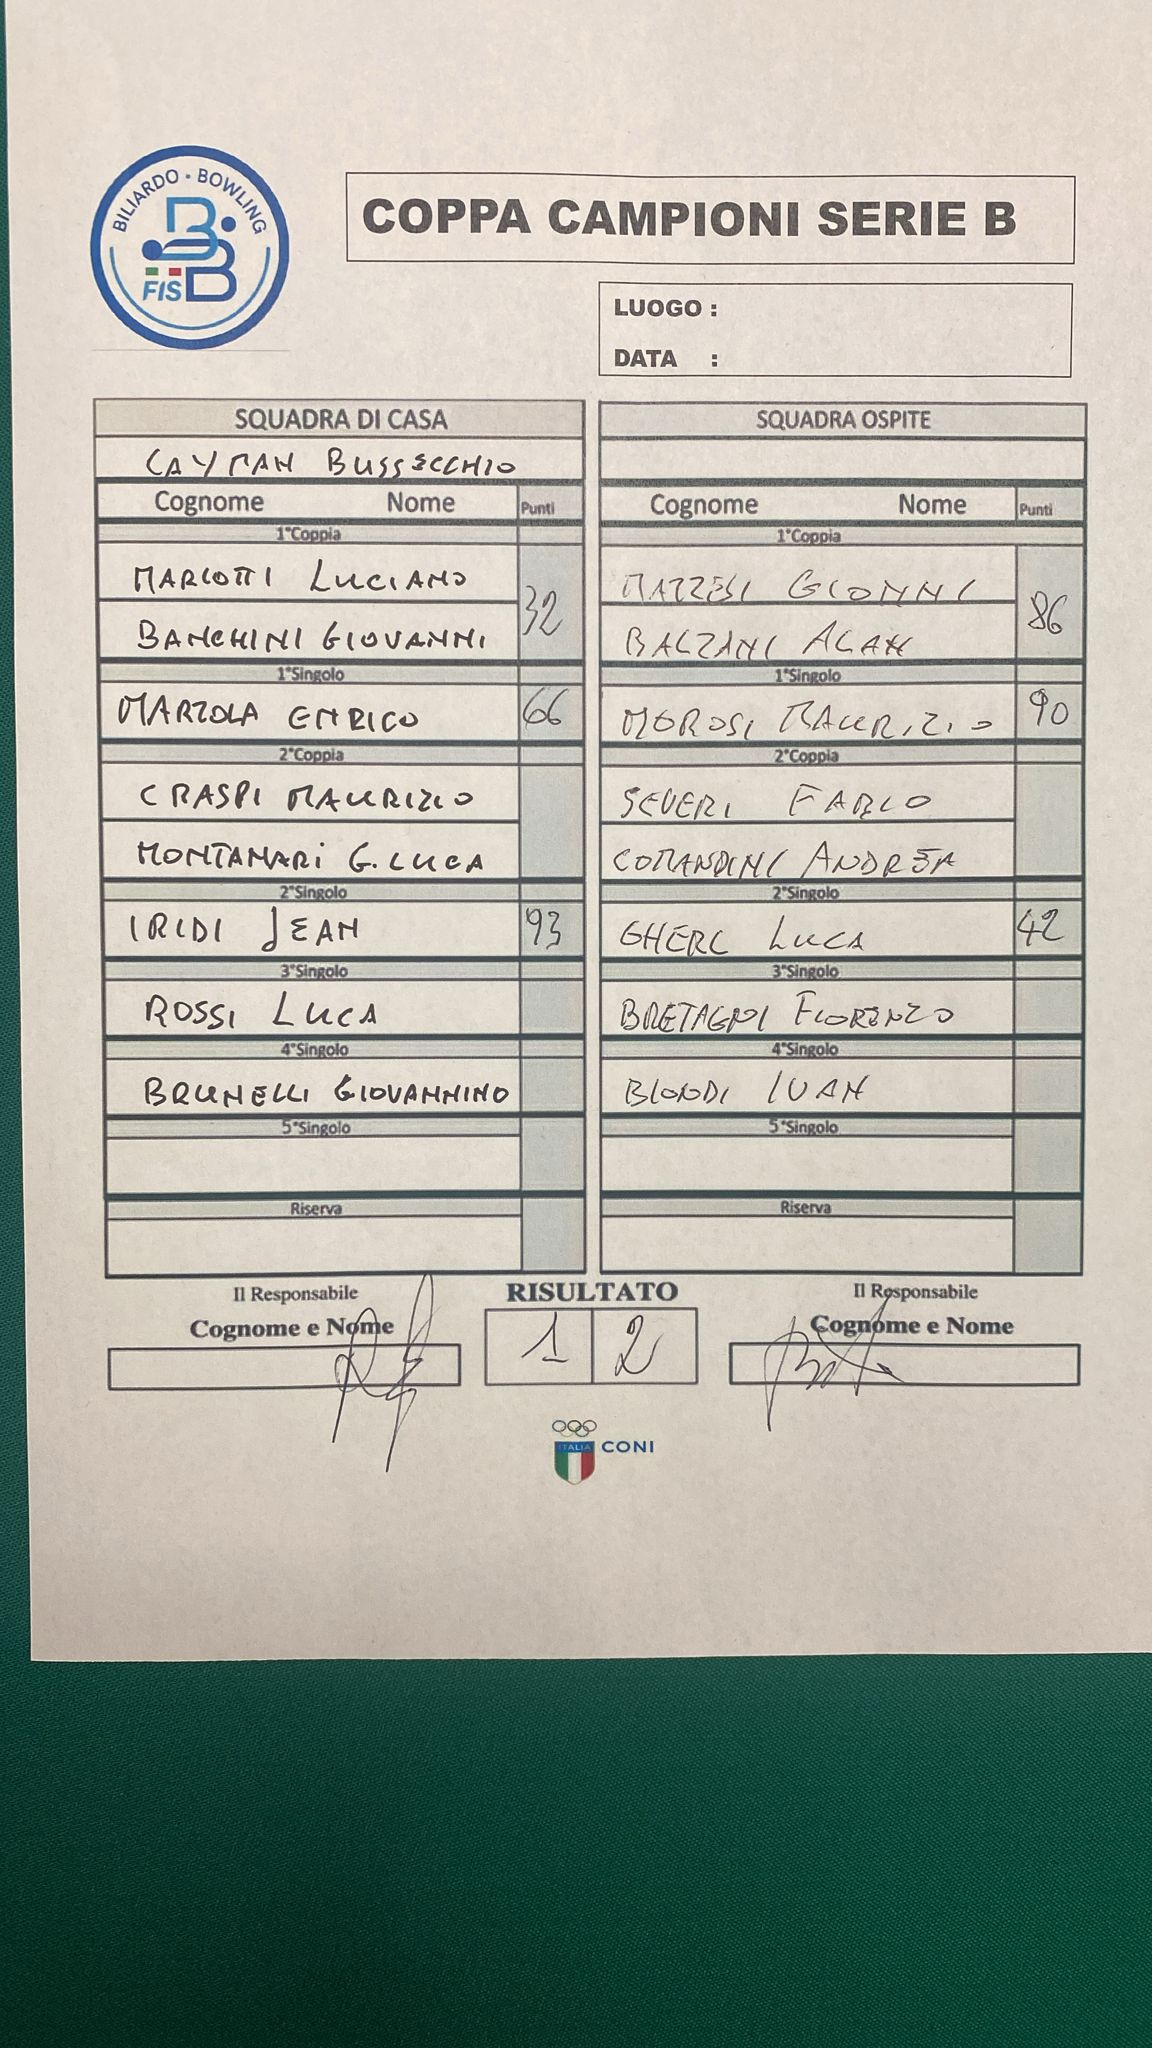 BILIARDO • BOWLING
FISBB
COPPA CAMPIONI SERIE B
LUOGO :
DATA :
SQUADRA DI CASA
CAYMAN BUSSECCHIO
Cognome Nome Punti
1°Coppia
MARIOTTI LUCIANO
32
BANCHINI GIOVANNI
1°Singolo
MARZOLA ENRICO 66
2°Coppia
CRASPI MAURIZIO
MONTANARI G. LUCA
2°Singolo
IRIDI JEAN 93
3°Singolo
ROSSI LUCA
4°Singolo
BRUNELLI GIOVANNINO
5°Singolo
Riserva
SQUADRA OSPITE
Cognome Nome Punti
1°Coppia
MAZZESI GIONNI
86
BALZANI ALAN
1°Singolo
MOROSI MAURIZIO 90
2°Coppia
SEVERI FABIO
COMANDINI ANDREA
2°Singolo
GHERL LUCA 42
3°Singolo
BRETAGNI FIORENZO
4°Singolo
BIONDI IVAN
5°Singolo
Riserva
Il Responsabile
Cognome e Nome
RISULTATO
1 2
Il Responsabile
Cognome e Nome
ITALIA CONI